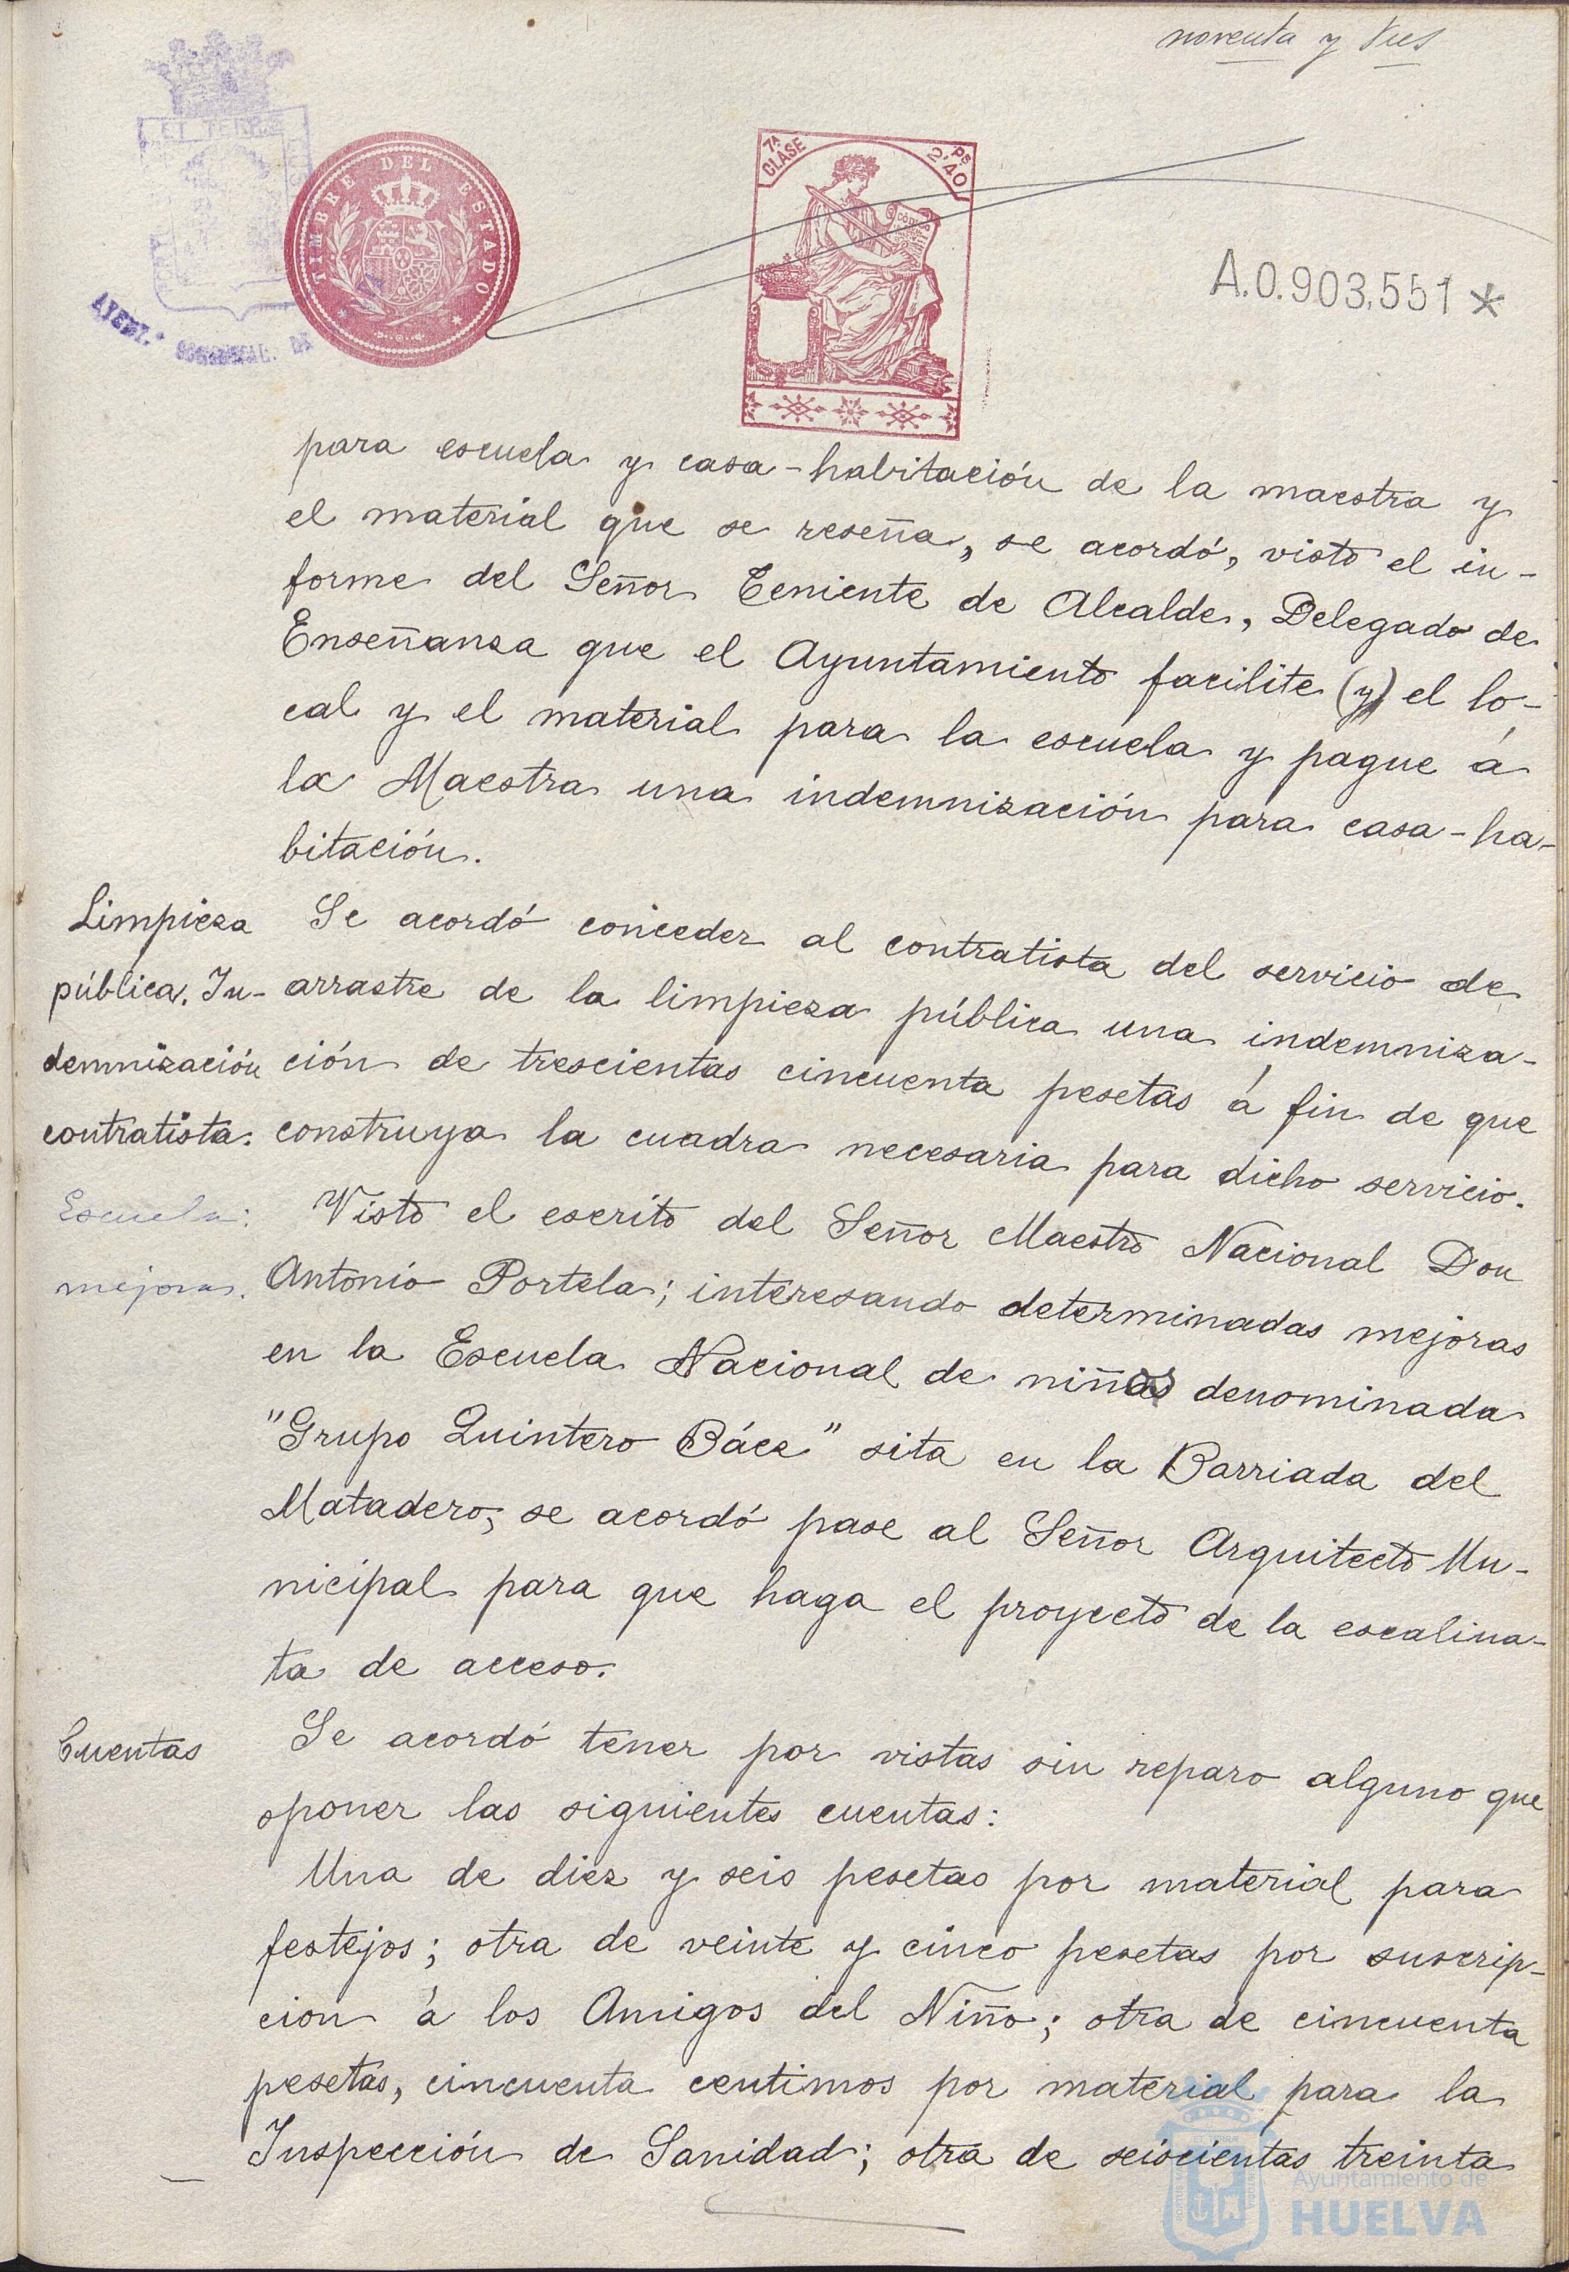 noventa y tres
ET TERRÆ
TIMBRE DEL ESTADO
7ª CLASE
2'40 Ps
A.0.903,551*
AYUNT.º
para escuela y casa-habitación de la maestra y
el material que se reseña, se acordó, visto el in-
forme del Señor Teniente de Alcalde, Delegado de
Enseñanza que el Ayuntamiento facilite (y) el lo-
cal y el material para la escuela y pague á
la Maestra una indemnización para casa-ha-
bitación.
Limpieza
pública. In-
demnización
contratista.
Se acordó conceder al contratista del servicio de
arrastre de la limpieza pública una indemniza-
ción de trescientas cincuenta pesetas á fin de que
construya la cuadra necesaria para dicho servicio.
Escuela:
mejoras.
Visto el escrito del Señor Maestro Nacional Don
Antonio Portela; interesando determinadas mejoras
en la Escuela Nacional de niñas denominada
"Grupo Quintero Báez" sita en la Barriada del
Matadero; se acordó pase al Señor Arquitecto Mu-
nicipal para que haga el proyecto de la escalina-
ta de acceso.
Cuentas
Se acordó tener por vistas sin reparo alguno que
oponer las siguientes cuentas:
Una de diez y seis pesetas por material para
festejos; otra de veinte y cinco pesetas por suscrip-
cion á los Amigos del Niño; otra de cincuenta
pesetas, cincuenta centimos por material para la
Inspección de Sanidad; otra de seiscientas treinta
Ayuntamiento de
HUELVA